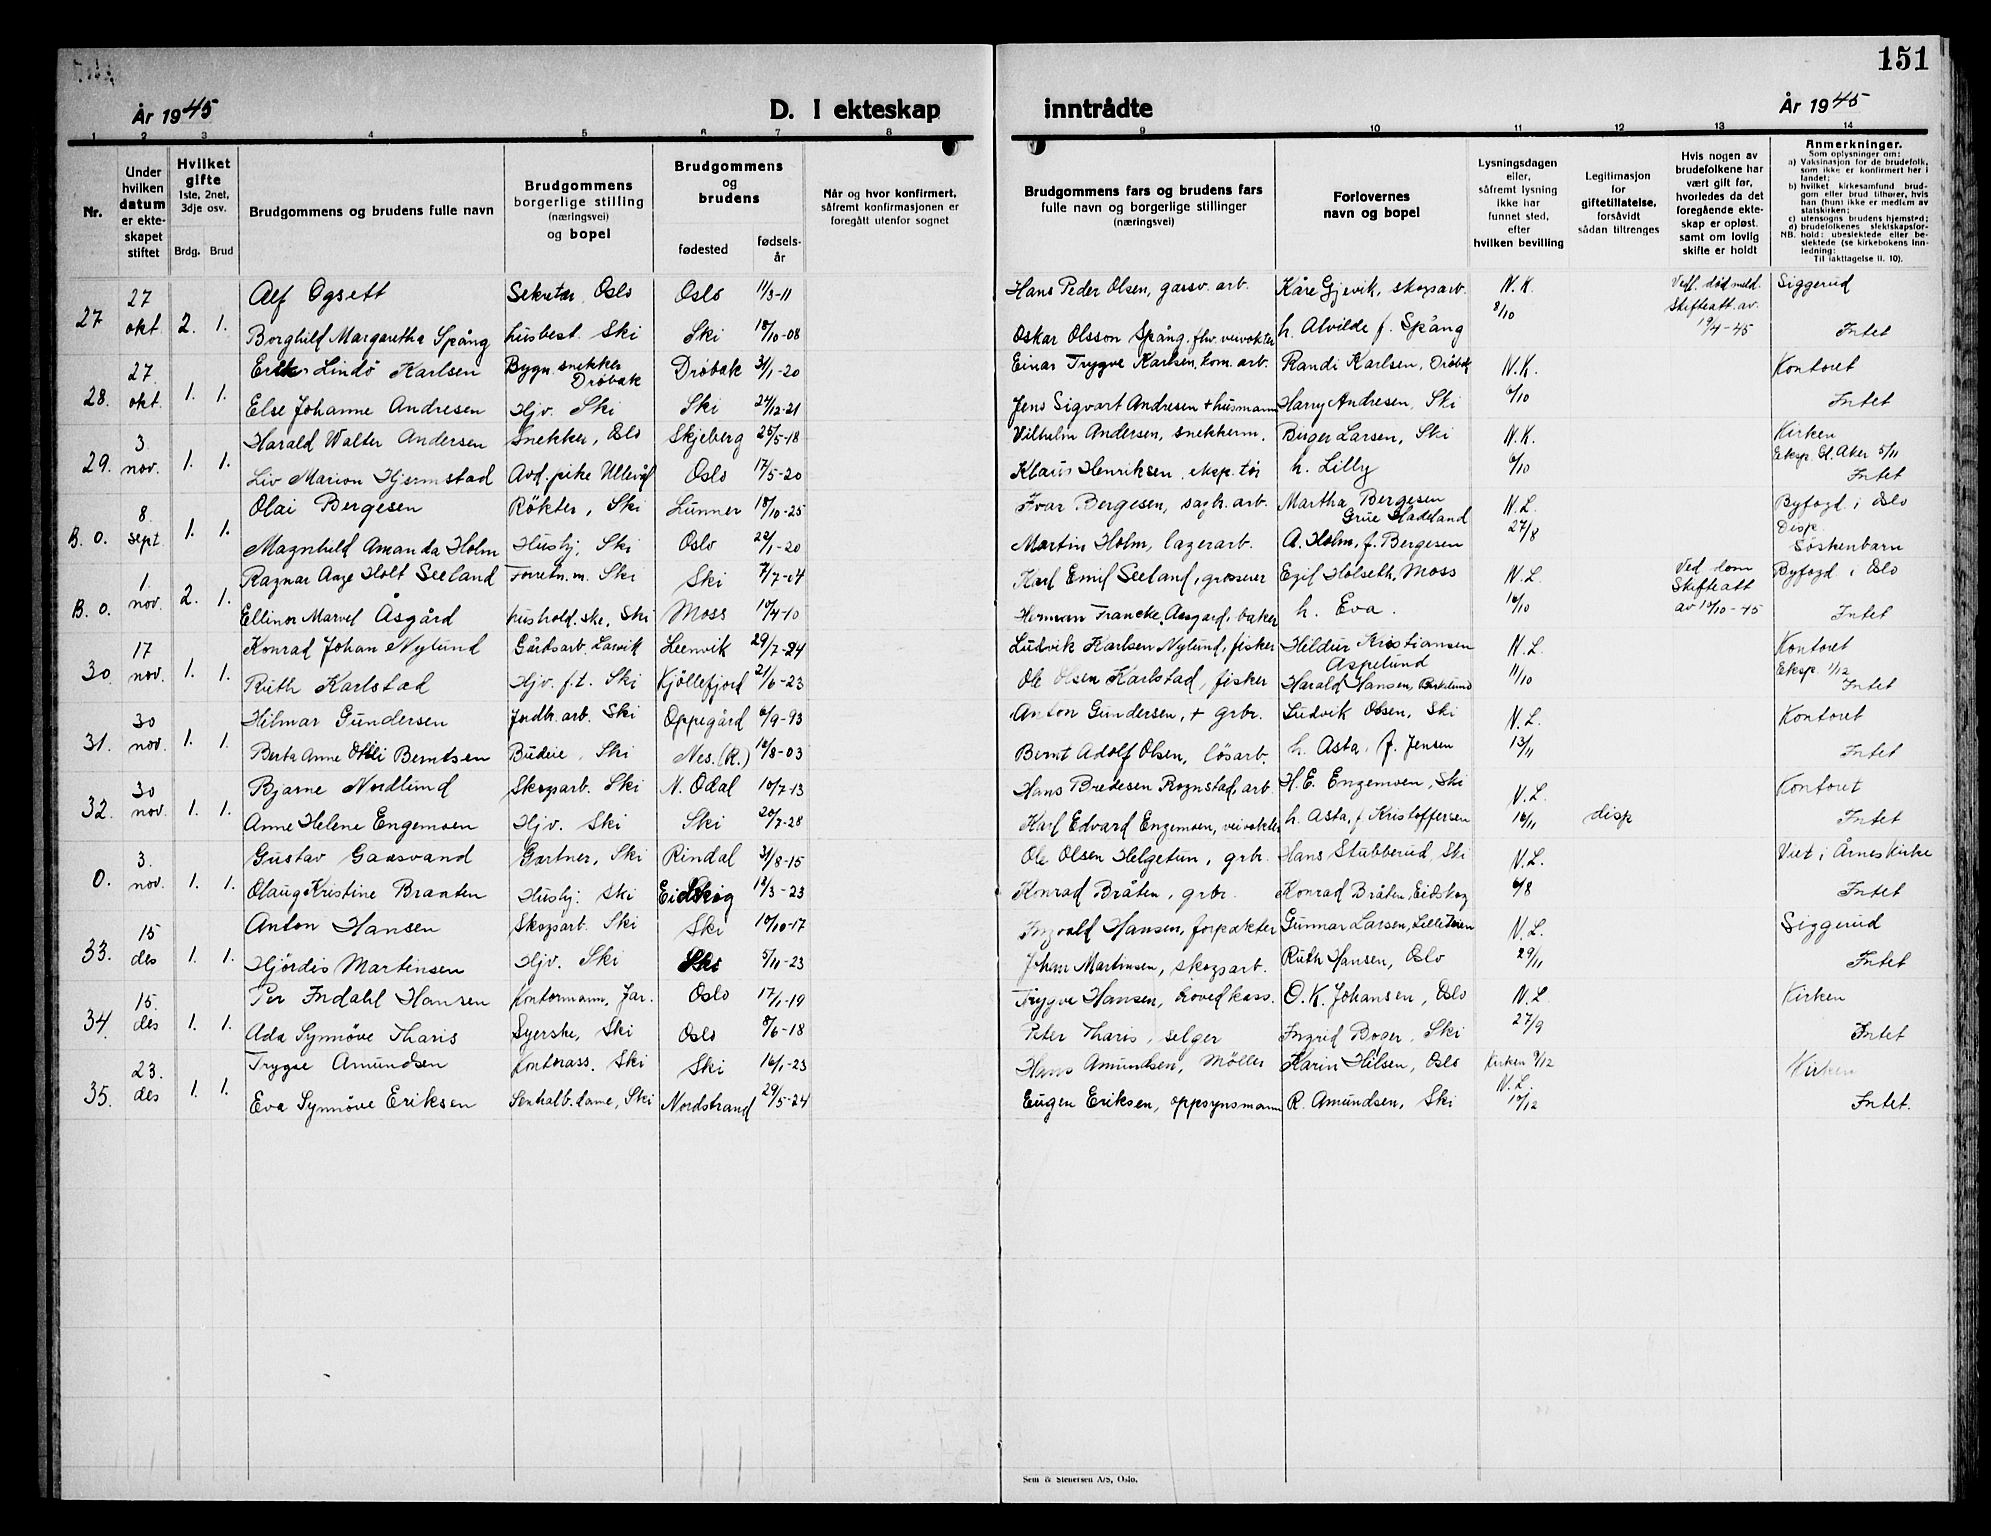 151
År 1945
D. I ekteskap inntrådte
År 1945
1 2 3 4 5 6 7 8 9 10 11 12 13 14
Nr.
Under hvilken datum er ekteskapet stiftet
Hvilket gifte 1ste, 2net, 3dje osv.
Brdg. Brud
Brudgommens og brudens fulle navn
Brudgommens borgerlige stilling (næringsvei) og bopel
Brudgommens og brudens
fødested
fødselsår
Når og hvor konfirmert, såfremt konfirmasjonen er foregått utenfor sognet
Brudgommens fars og brudens fars fulle navn og borgerlige stillinger (næringsvei)
Forlovernes navn og bopel
Lysningsdagen eller, såfremt lysning ikke har funnet sted, efter hvilken bevilling
Legitimasjon for giftetillatelse, forsåvidt sådan tiltrenges
Hvis nogen av brudefolkene har vært gift før, hvorledes da det foregående ekteskap er opløst. samt om lovlig skifte er holdt
Anmerkninger.
Som oplysninger om:
a) Vaksinasjon for de brudefolk, som ikke er konfirmert her i landet;
b) hvilket kirkesamfund brudgom eller brud tilhører, hvis han (hun) ikke er medlem av statskirken;
c) utensogns brudens hjemsted;
d) brudefolkenes slektskapsforhold: ubeslektede eller beslektede (se kirkebokens innledning:
NB.
Til iakttagelse II. 10).
27 27 okt 2. 1. Alf Ogsett Sekretær, Oslo Oslo 11/3-11 Hans Peder Olsen, gassv. arb. Kåre Gjevik, skogsarb. N.K. 8/10 Veff. død meld. Skifteatt. av 19/4-45 Siggerud
Borghild Margaretha Spång husbest. Ski Ski 18/10-08 Oskar Olsson Spång, fhv. veivokter h. Alvilde f. Spång Intet
28. 27. okt. 1. 1. Lindö Karlsen Bygn. snekker Drøbak Drøbak 31/1-20 Einar Trygve Karlsen, kom. arb. Randi Karlsen, Drøbak N.K. 6/10 Kontoret
Else Johanne Andresen Hjv. Ski Ski 24/12-21 Jens Sigvart Andresen + husmann Harry Andresen, Ski Intet
29. 3 nov. 1. 1. Harald Walter Andersen Snekker, Oslo Skjeberg 25/5-18 Vilhelm Andersen, snekkerm. Birger Larsen, Ski N.K. 6/10 Kirken
Eksp. V. Aker 5/11
Liv Marion Hjermstad Avd. pike Ullevål Oslo 17/5-20 Klaus Henriksen, eksp. tør h. Lilly Intet
B. O. 8. sept. 1. 1. Olai Bergesen Røkter, Ski Lunner 18/10-25 Ivar Bergesen, sagb. arb. Martha Bergesen Grue Hadeland N.L. 27/8 Byfogd. i Oslo
Disp.
Magnhild Amanda Holm Husbj. Ski Oslo 22/1-20 Martin Holm, lagerarb. A. Holm, f. Bergesen Söskenbarn
B. O. 1. nov. 2. 1. Ragnar Aage Holt Seeland Forretn. m. Ski Ski 7/7-14 Karl Emil Seeland, grosserer Egil Holseth, Moss N.L. 16/10 Ved dom Skifteatt av 10/10-45 Byfogd. i Oslo
Ellinor Marvel Åsgård hushold. ske, Ski Moss 10/4-10 Herman Francke Aasgard, baker h. Eva. Intet
30. 17 nov. 1. 1. Konrad Johan Nylund Gårdsarb. Larvik Leenvik 29/7-24 Ludvik Karlsen Nylund, fisker Hildur Kristiansen Aspelund N.L. 11/10 Kontoret
Eksp. 1/12
Ruth Karlstad Hjv. f.t. Ski Kjøllefjord 21/6-23 Ole Olsen Karlstad, fisker Harald Hansen, Intet
31. 30 nov. 1. 1. Hilmar Gundersen Jndh. arb. Ski Oppegård 6/9-93 Anton Gundersen, + grbr. Ludvik Olsen, Ski N.L. 13/11 Kontoret
Berta Anne Otteli Berntsen Budeie, Ski Nes. (R.) 16/8-03 Bernt Adolf Olsen, lösarb. h. Asta, f. Jensen Intet
32. 30 nov. 1. 1. Bjarne Nordlund Skogsarb. Ski N. Odal 10/7-13 Hans Bredesen Rognstad, arb. H.E. Engemoen, Ski N.L. 16/11 disp Kontoret
Anne Helene Engemoen Hjv. Ski Ski 20/7-28 Karl Edvard Engemoen, veivokter h. Asta, f Kristoffersen Intet
O. 3. nov. 1. 1. Gustav Gaasvand Gartner, Ski Rindal 31/8-15 Ole Olsen Helgetun, grbr. Hans Stubberud, Ski N.L. 6/8 Viet i Årnes kirke
Olaug Kristine Braaten Husbj. Ski Eidskog 12/3-23 Konrad Bråten, grbr. Konrad Bråten, Eidskog Intet
33. 15 des 1. 1. Anton Hansen Skogsarb. Ski Ski 10/10-17 Ingvald Hansen, forpakter Gunnar Larsen, N.L. 29/11 Siggerud
Hjördis Martinsen Hjv. Ski Ski 5/11-23 Johan Martinsen, skogsarb. Ruth Hansen, Oslo Intet
34. 15. des 1. 1. Per Indahl Hansen Kontormann, Jar. Oslo 17/1-19 Trygve Hansen, hovedkass. O.K. Johansen, Oslo N.L. 27/9 Kirken
Ada Synnöve Tharis Syerske, Ski Oslo 8/6-18 Peter Tharis, selger Ingrid Boger, Ski Intet
35. 23. des 1. 1. Trygve Amundsen Kontorass. Ski Ski 16/1-23 Hans Amundsen, Møller Karin Hilsen, Oslo Kirken 9/12 Kirken
Eva Synnöve Eriksen Sentralb. dame, Ski Nordstrand 29/5-24 Eugen Eriksen, oppsynsmann R. Amundsen, Ski N.L. 10/12 Intet.
Sem & Stenersen A/S, Oslo.